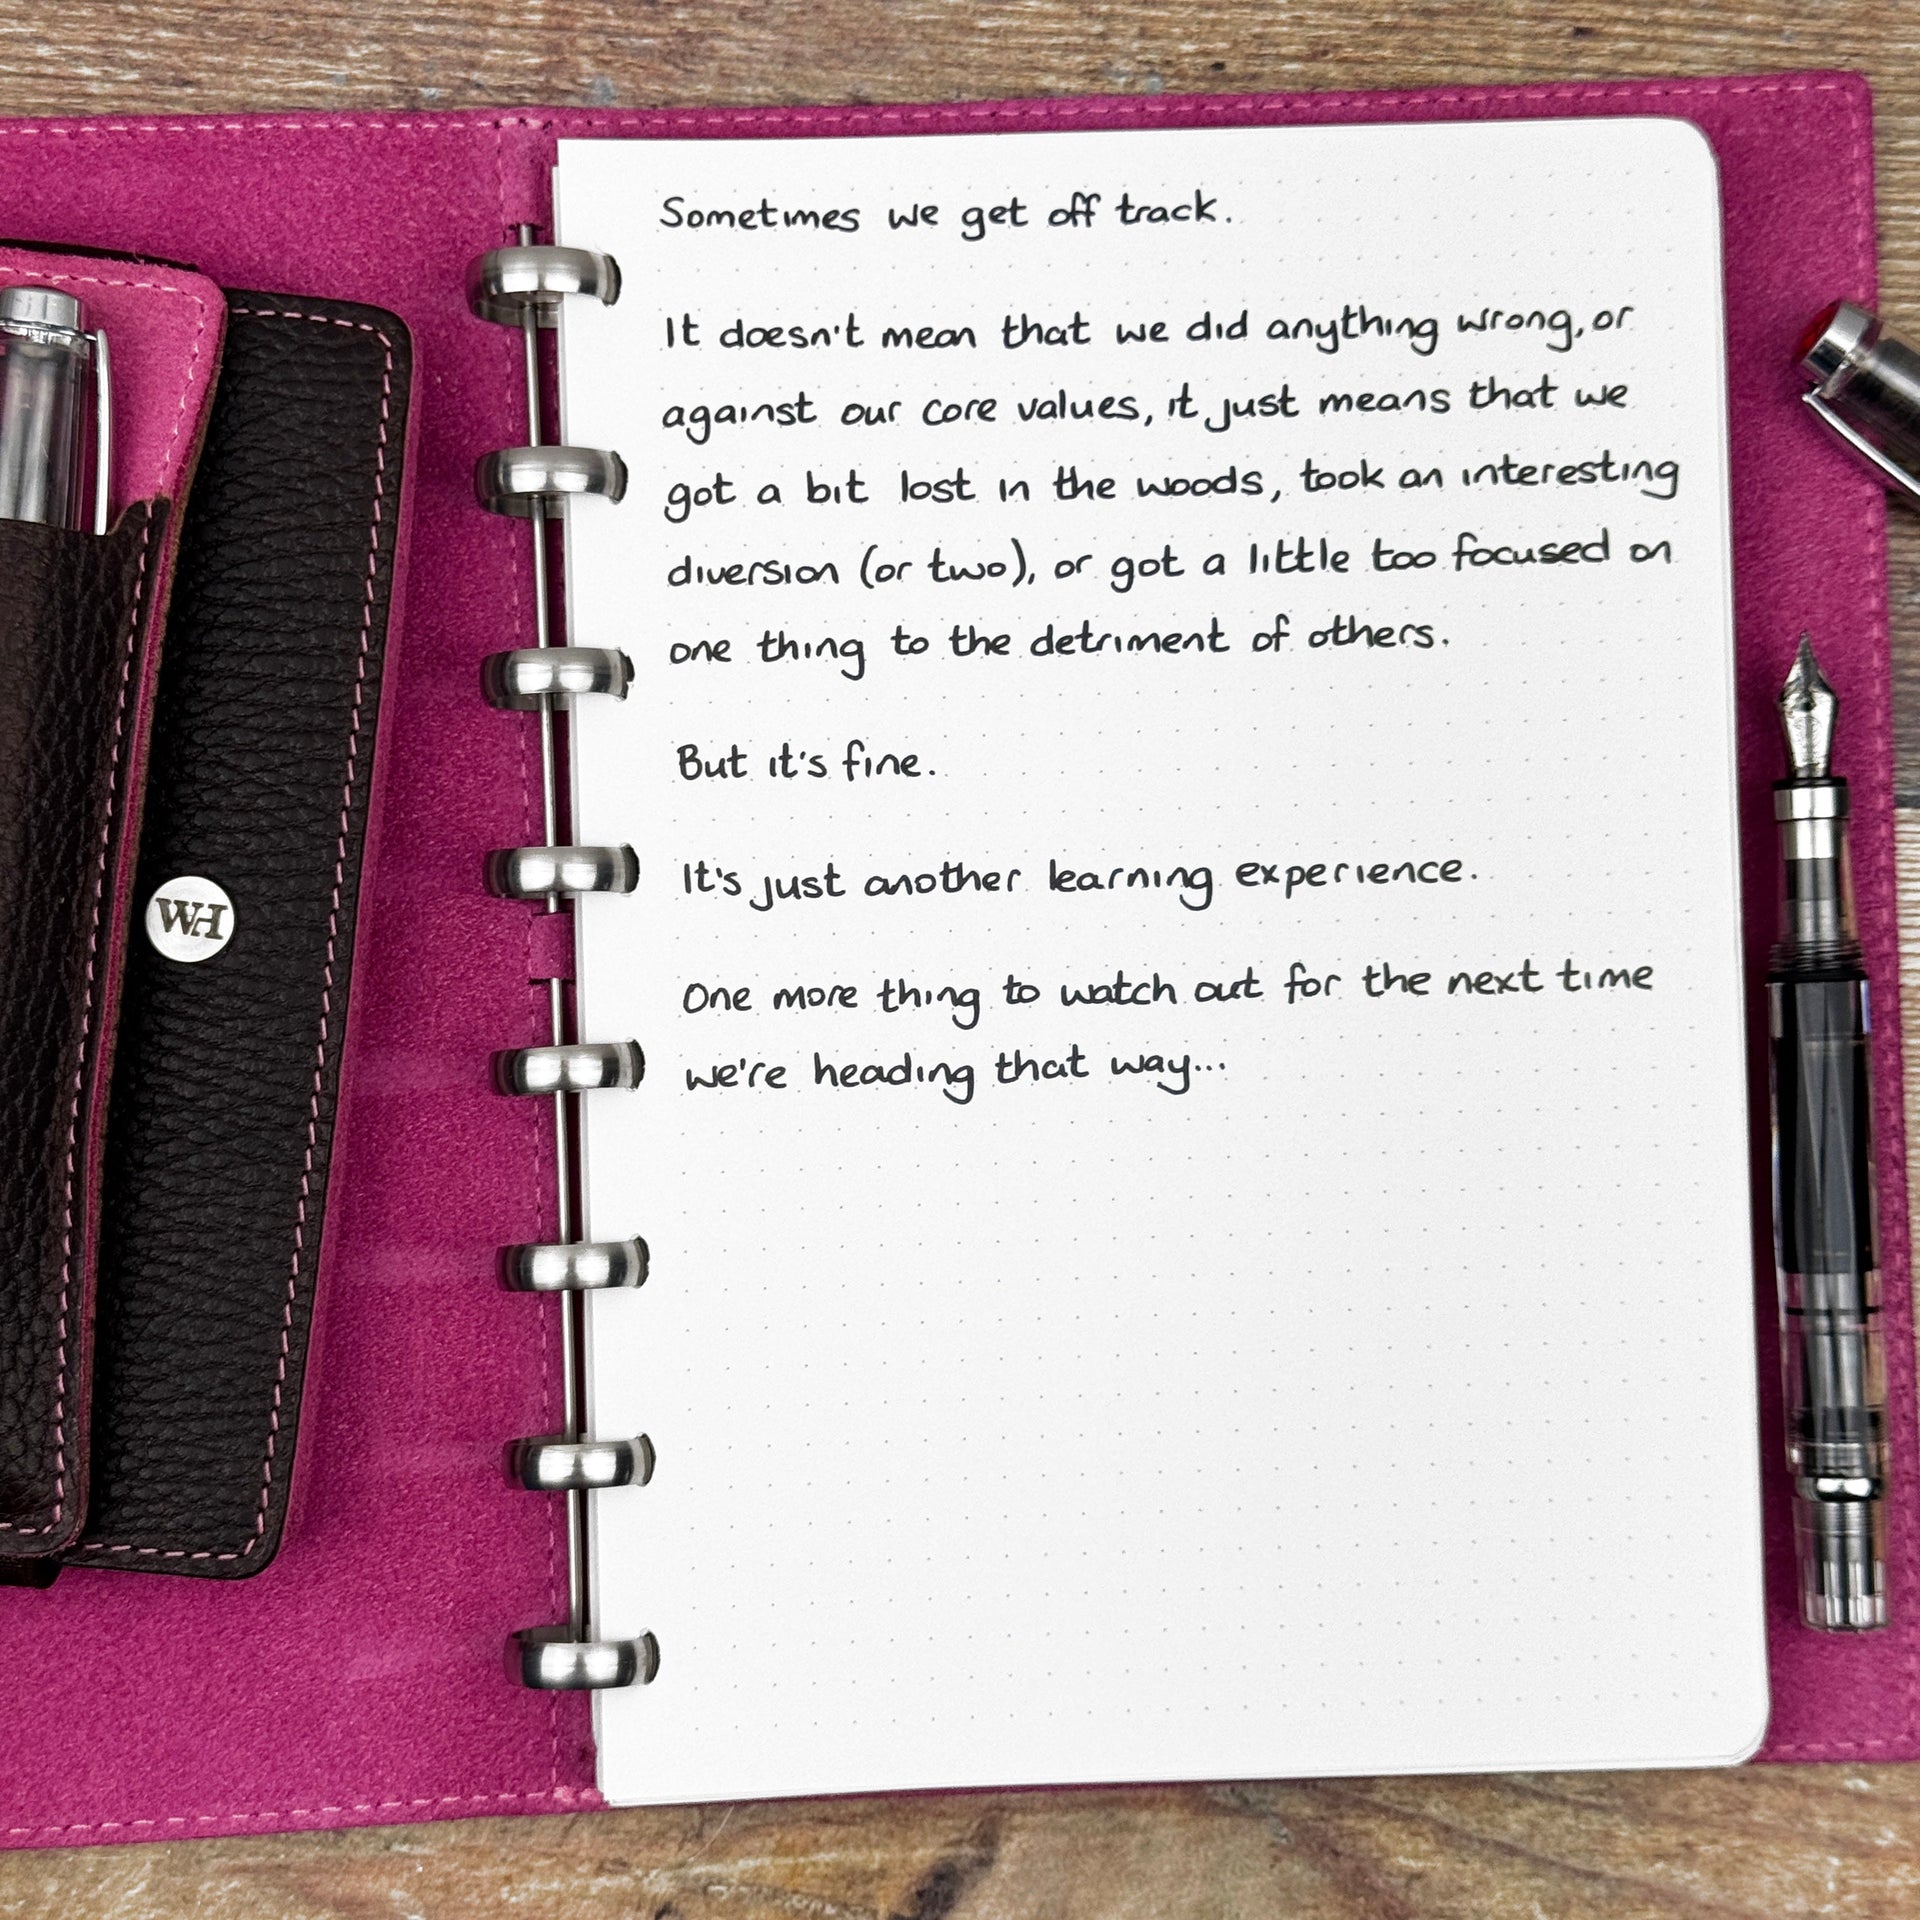 Sometimes we get off track.
It doesn't mean that we did anything wrong, or
against our core values, it just means that we
got a bit lost in the woods, took an interesting
diversion (or two), or got a little too focused on
one thing to the detriment of others.
But it's fine.
It's just another learning experience.
One more thing to watch out for the next time
we're heading that way...
WH